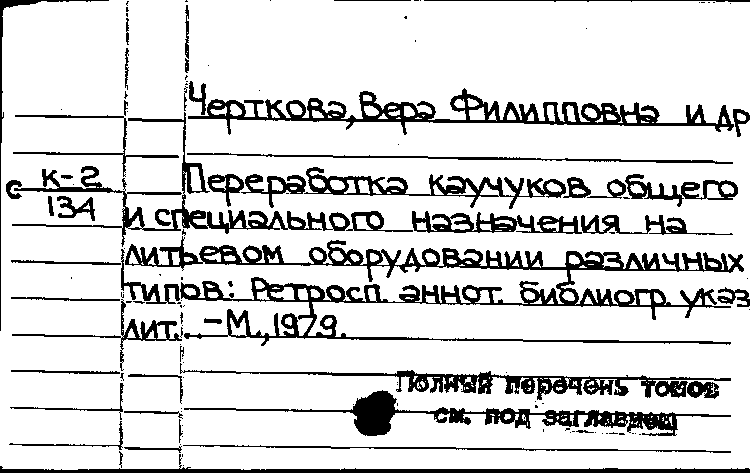 Черткова, Вера Филипповна и др
с К-2
134
Переработка каучуков общего
и специального назначения на
литьевом оборудовании различных
типов: Ретросп. аннот. библиогр. указ
лит... - М., 1979.
Полный перечень томов
см. под заглавием